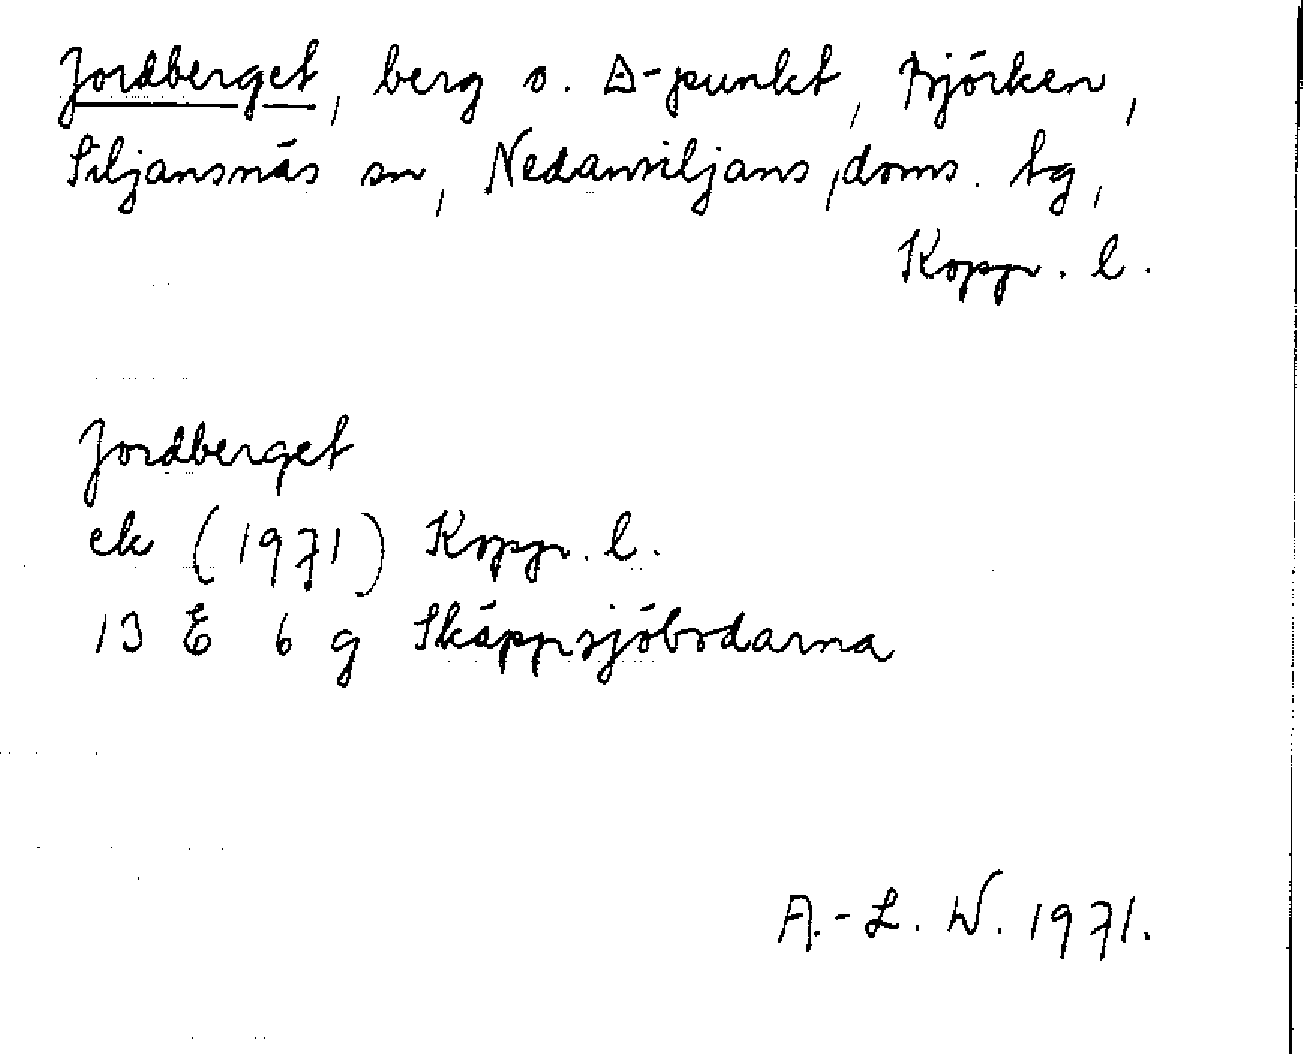 Jordberget, berg o. Δ-punkt, Björken,
Siljansnäs sn, Nedansiljans doms. tg,
Kopp. l.
Jordberget
ek (1971) Kopp. l.
13 E 6 g Skäppsjöbodarna
A.-L. W. 1971.